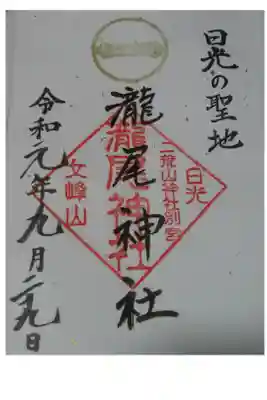 日光の聖地
瀧尾神社
令和元年九月二九日
瀧尾神社
日光
二荒山神社別宮
女峰山